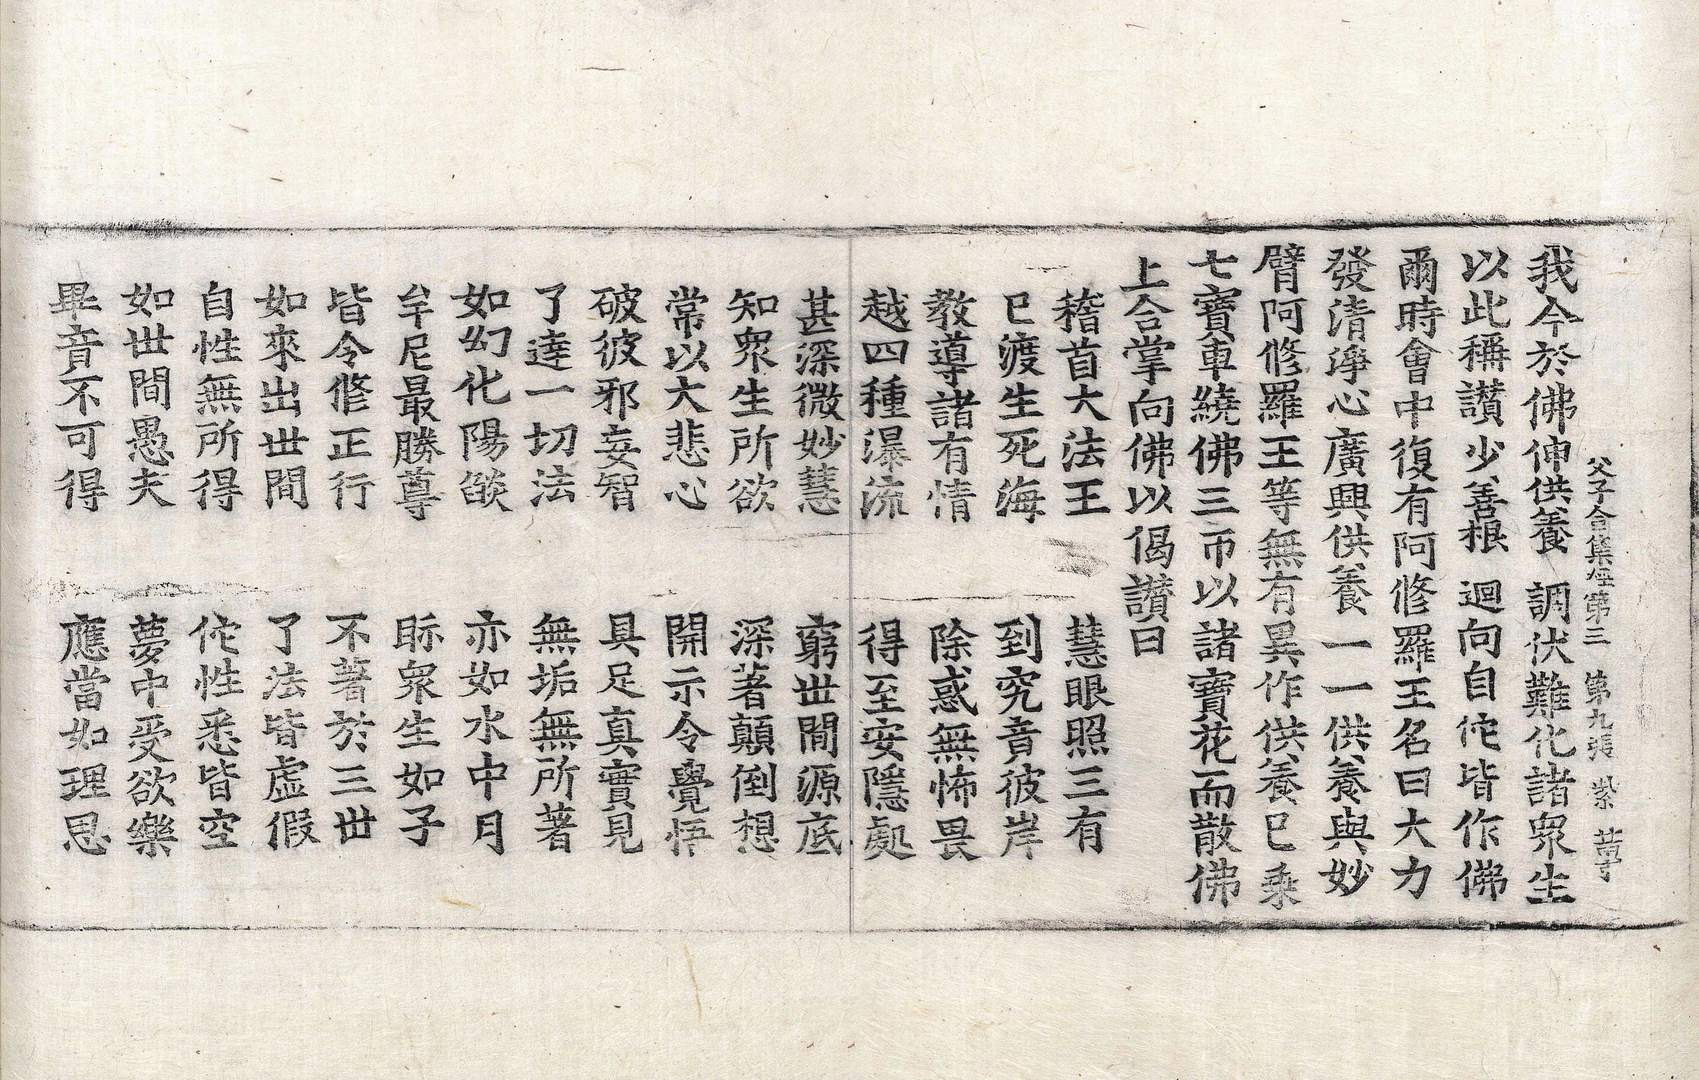 父子合集經第三　第九張　紫
我今於佛伸供養　調伏難化諸衆生
以此稱讃少善根　迴向自佗皆作佛
爾時會中復有阿修羅王名曰大力
發清淨心廣興供養一一供養與妙
臂阿修羅王等無有異作供養已乘
七寶車繞佛三帀以諸寶花而散佛
上合掌向佛以偈讃曰
稽首大法王　慧眼照三有
已渡生死海　到究竟彼岸
教導諸有情　除惑無怖畏
越四種瀑流　得至安隱處
甚深微妙慧　窮世間源底
知衆生所欲　深著顛倒想
常以大悲心　開示令覺悟
破彼邪妄智　具足真實見
了達一切法　無垢無所著
如幻化陽燄　亦如水中月
牟尼最勝尊　眎衆生如子
皆令修正行　不著於三世
如來出世間　了法皆虛假
自性無所得　佗性悉皆空
如世間愚夫　夢中受欲樂
畢竟不可得　應當如理思